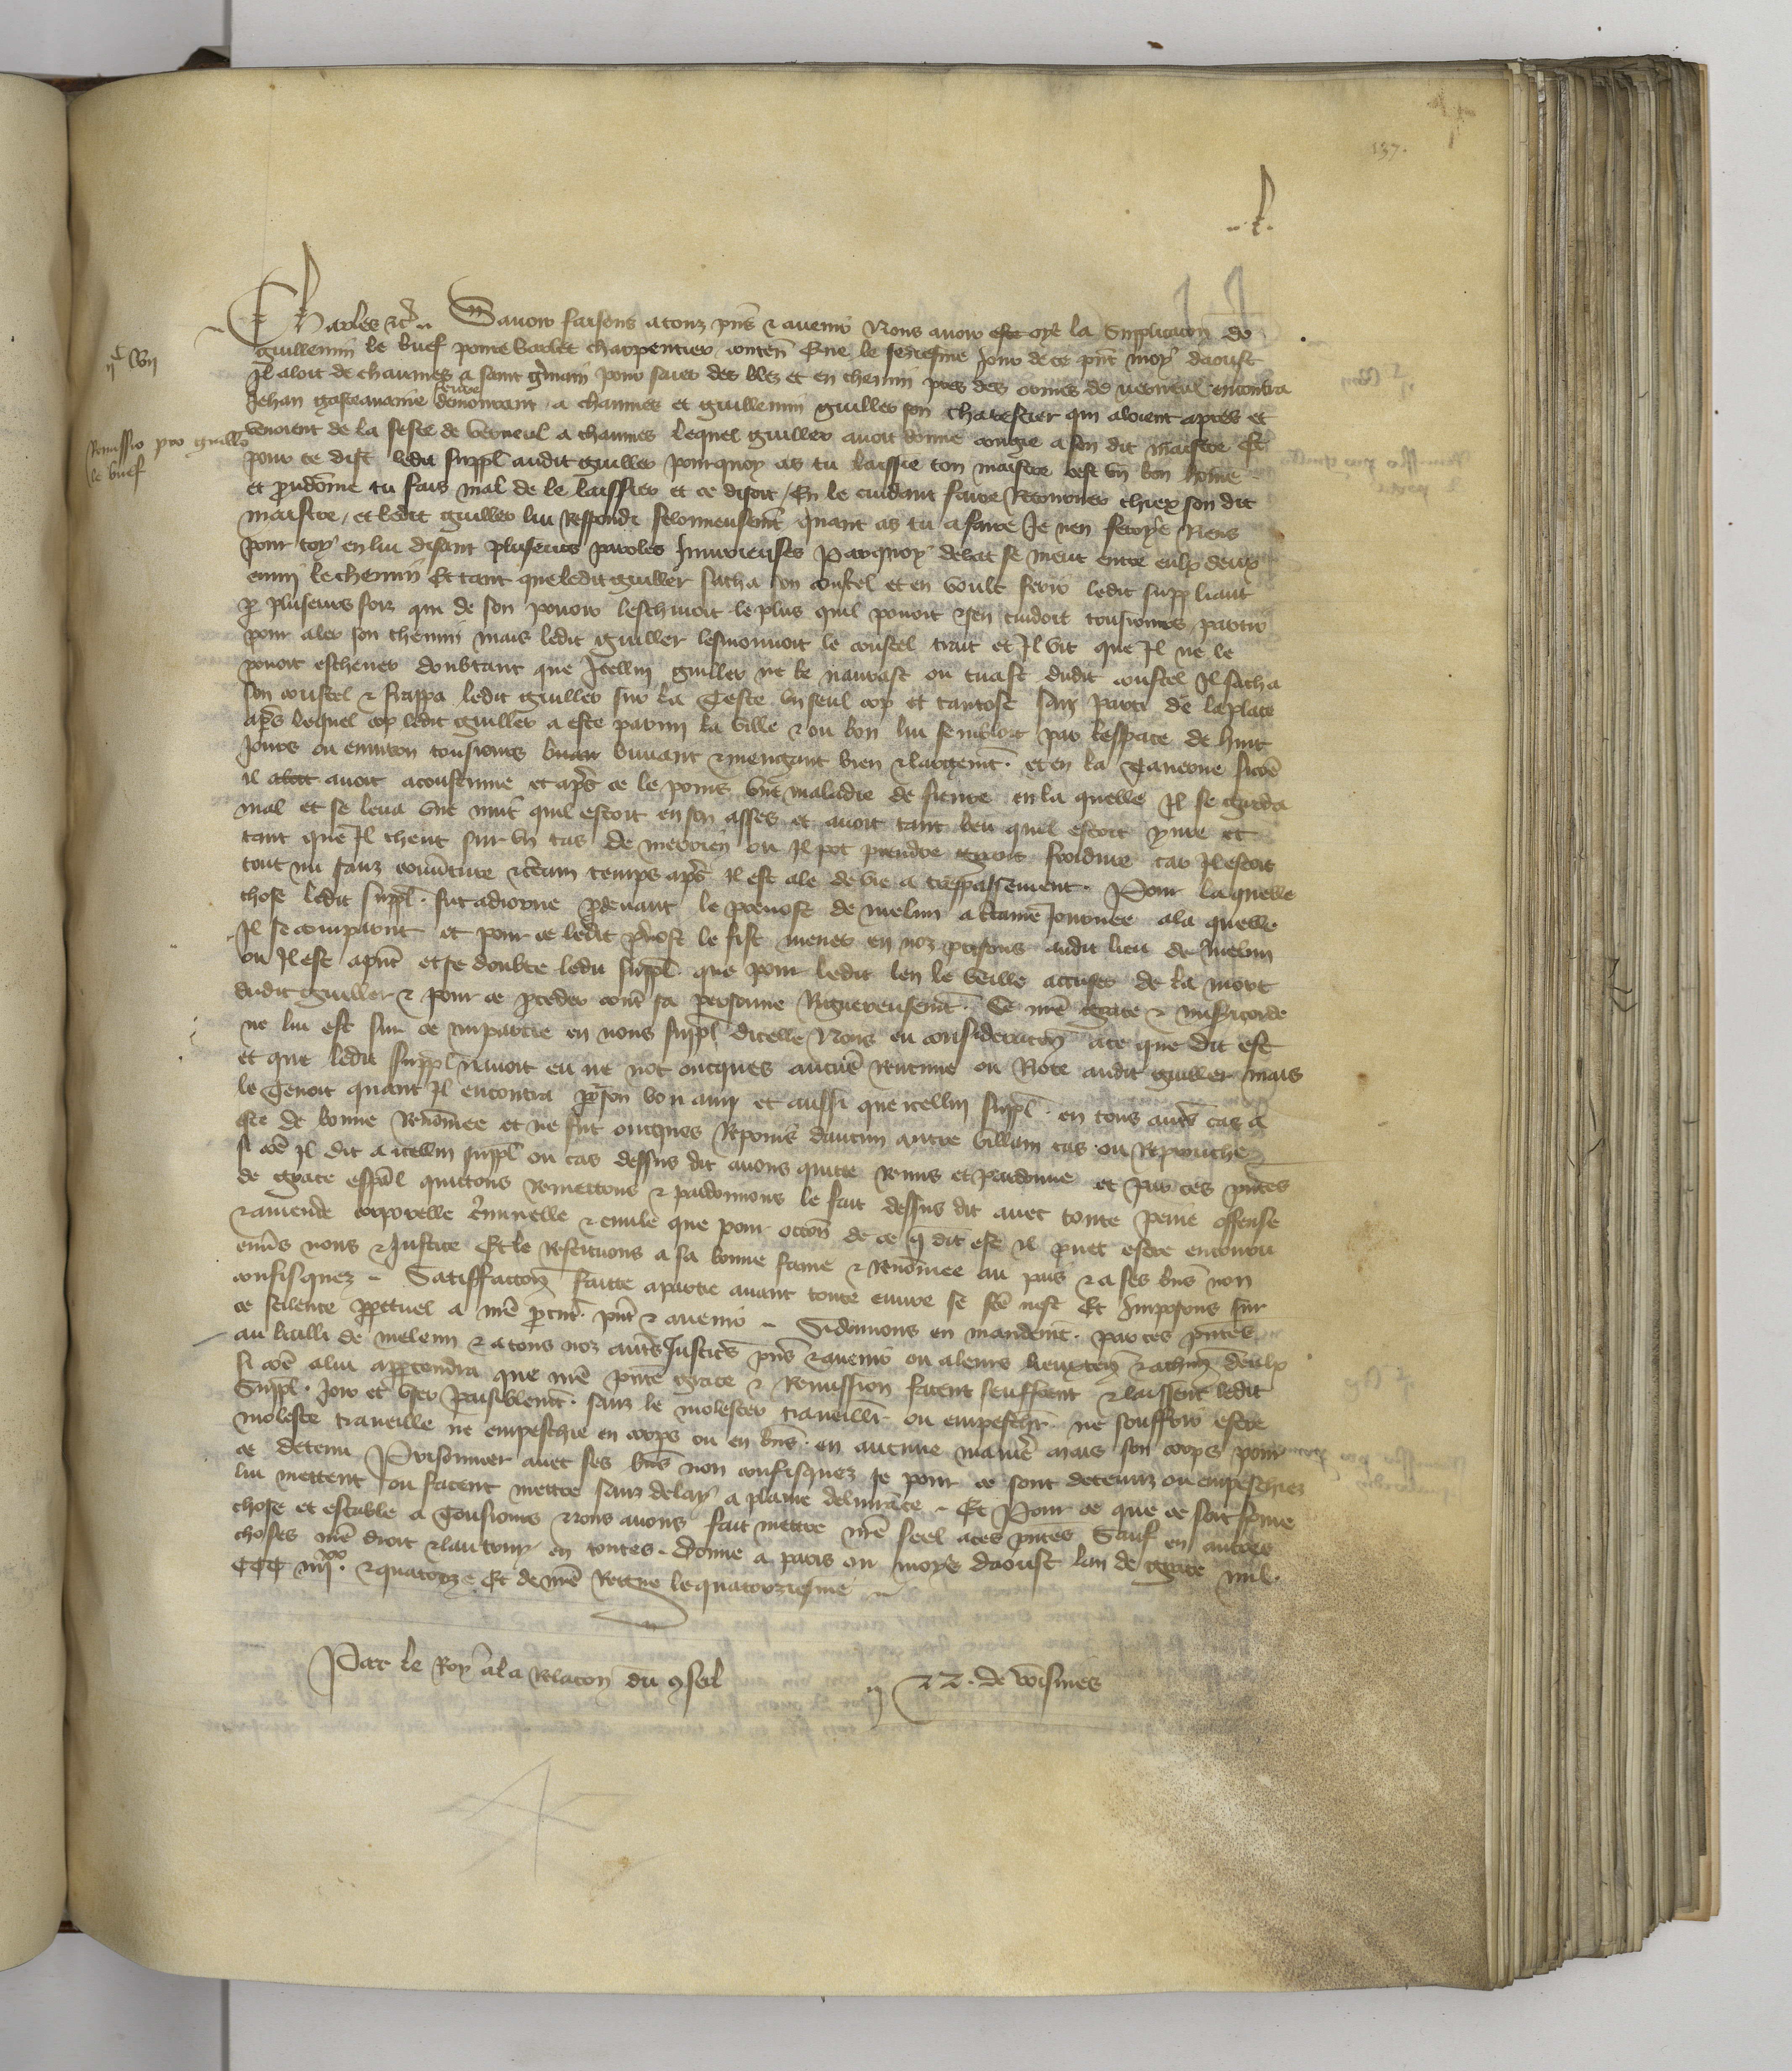 137.
Charles etc. Savoir faisons a touz pns et avenir Nous avoir este oye la Supplicacion de
guillemin le buef povre varlet charpentier conten Que le sedesme Jour de ce pnt moys daoust
Il aloit de chaumes a saint gmain pour saier des blez et en chemin pres des ormes de verneul encontra
Jehan gasteavoine demourant a chaumes et guillemin guiller son charretier qui aloient apres et
venoient de la feste de verneul a chaumes lequel guiller avoit donne congie a son dit maistre Et
pour ce dist ledit suppl audit guiller pourquoy as tu laissie ton maistre cest un bon home
et preudome tu fais mal de le laissier et ce disoit En le cuidant faire Retourner chiex son dit
maistre et ledit guiller lui Respondi felonneusemt quant as tu a faire Je nen feroye Riens
pour toy en lui disant pluseurs paroles Iniurieuses Parquoy debat se meut entre eulx deux
enmy le chemin Et tant que ledit guiller sacha son coustel et en voult ferir ledit suppliant
p pluseurs foiz qui de son povoir leschivoit le plus quil povoit et sen cuidoit tousiours partir
pour aler son chemin mais ledit guiller le coustel trait et Il vit que Il ne le
povoit eschever doubtant que Icellui guiller ne le navrast ou tuast dudit coustel Il sacha
son coustel et frappa ledit guiller sur la Teste un seul cop et tantost sanz parti de la place
aps lequel cop ledit guiller a este parmi la ville et ou bon lui sembloit par lespace de huit
Jours ou environ tousiours buvant et mengant bien et largemt et en la Taverne sicoe
il avoit acoustume et aps ce le pouis une maladie de fievre en la quelle Il se garda
mal et se leva une nuit quil estoit en son asses et avoit tant beu quil estoit yvre et
tant que Il cheut sur un tas de merrien ou Il pot prendre froidure car Il estoit
tout nu sanz couvture et certain temps aps Il est ale de vie a trespassement. Pour laquelle
chose ledit suppl. fut adiorne pdevant le prevost de melun a ctaine Journee a la quelle
Il se comparut et pour ce ledit pvost le fist mener en noz prisons audit lieu de Melun
ou Il est apnt et se doubte ledit suppl. que pour ledit len le veille accuser de la mort
dudit guiller et pour ce proceder cont sa personne Rigoreusemt. Se nre grace et misicorde
ne lui est sur ce impartie en nous suppl dicelle Nous eu consideracion a ce que dit est
et que ledit suppl navoit eu ne not oncques aucue Rancune ou Riote audit guiller mais
le Tenoit quant Il encontra pr son bon amy et aussi que icellui suppl. en tous autres cas a
este de bonne Renomee et ne fut oncques Repouis daucun autre villain cas ou Reprouche
si coe Il dit a icellui suppl ou cas dessus dit avons quicte Remis et pardonne et par ces pntes
de grace espal quictons Remettons et pardonnons le fait dessus dit avec toute peine offense
et amende corporelle criminelle et civile que pour occon de ce q dit est il puet estre encouru
envs nous et Justice Et le Restituons a sa bonne fame et Renomee au pais et a ses bns non
confisquez Satisffacion faicte a partie avant toute euvre se fce nest Et Imposons sur
ce scilence ppetuel a nre pcur. pnt et avenir Si donnons en mandemt. par ces pntes
au bailli de melun et a tous noz autrs Justicrs pns et avenir ou a leurs lieuxten et a chun deulx
si coe a lui appartendra que nre pnte grace et Remission facent seuffrent et laissent ledit
Suppl. Joir et User Paisiblemt. sanz le molester travaillr ou empeschr ne souffrir estre
moleste traveillie ne empeschie en corps ou en bns en aucune manie mais son corps pour
ce detenu Prisonnier avec ses bns non confisquez se pour ce sont detenuz ou empeschiez
lui mettent ou facent mettre sanz delay a plaine delivrance Et Pour ce que ce soit ferme
chose et estable a Tousiours Nous avons fait mettre nre seel a ces pntes Sauf en autres
choses nre droit et lautruy en toutes. Donne a paris ou moys daoust lan de grace mil.
CCC iiijxx. et quatorze Et de nre Regne le quatorziesme
Par le Roy a la Relacion du conseil
de voisines
ijC Vij
Remissio pro guillo
le buef